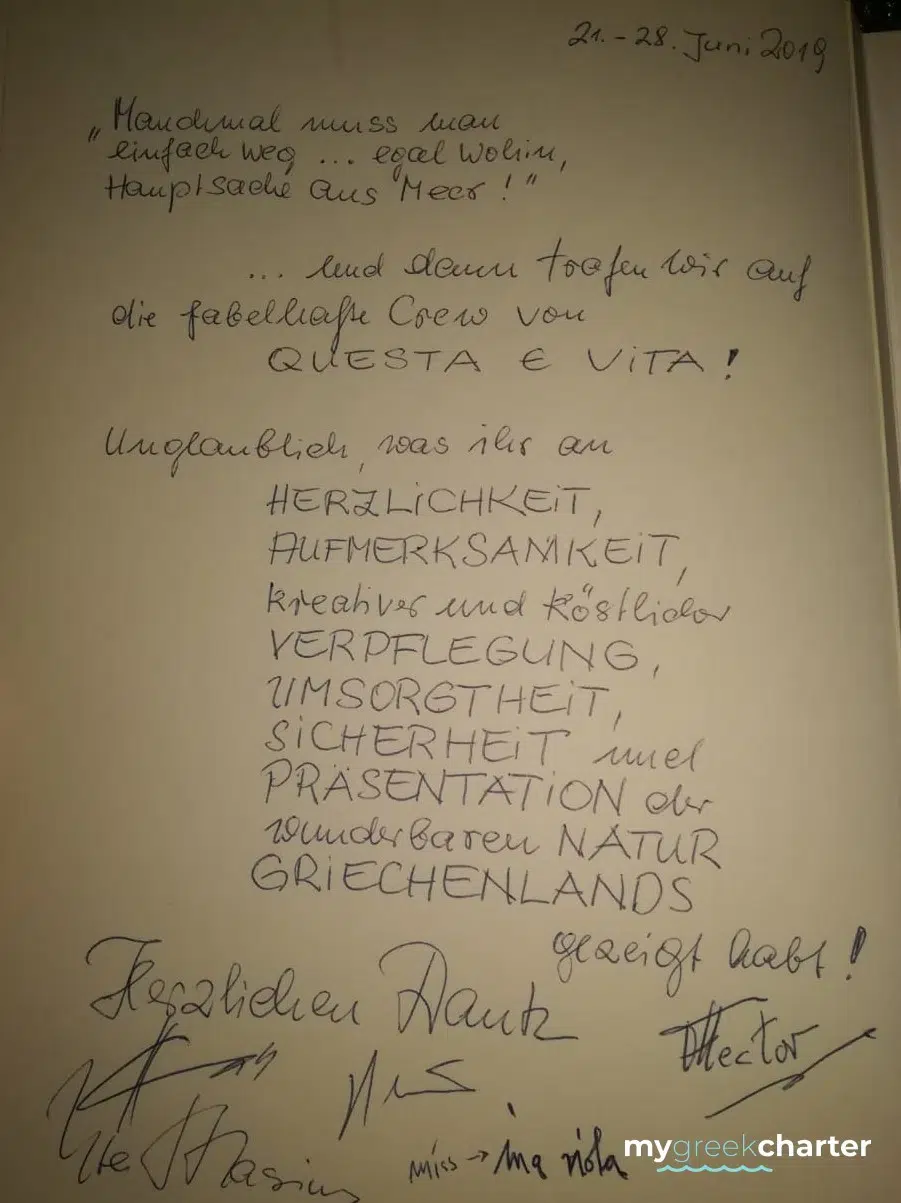 21. - 28. Juni 2019
„Manchmal muss man
einfach weg ... egal wohin,
Hauptsache ans Meer!"
... und dann trafen wir auf
die fabelhafte Crew von
QUESTA E VITA!
Unglaublich, was ihr an
HERZLICHKEIT,
AUFMERKSAMKEIT,
kreativer und köstlicher
VERPFLEGUNG,
UMSORGTHEIT,
SICHERHEIT und
PRÄSENTATION der
wunderbaren NATUR
GRIECHENLANDS
gezeigt habt!
Herzlichen Dank
Hector
Ute
miss → ina viola
mygreekcharter